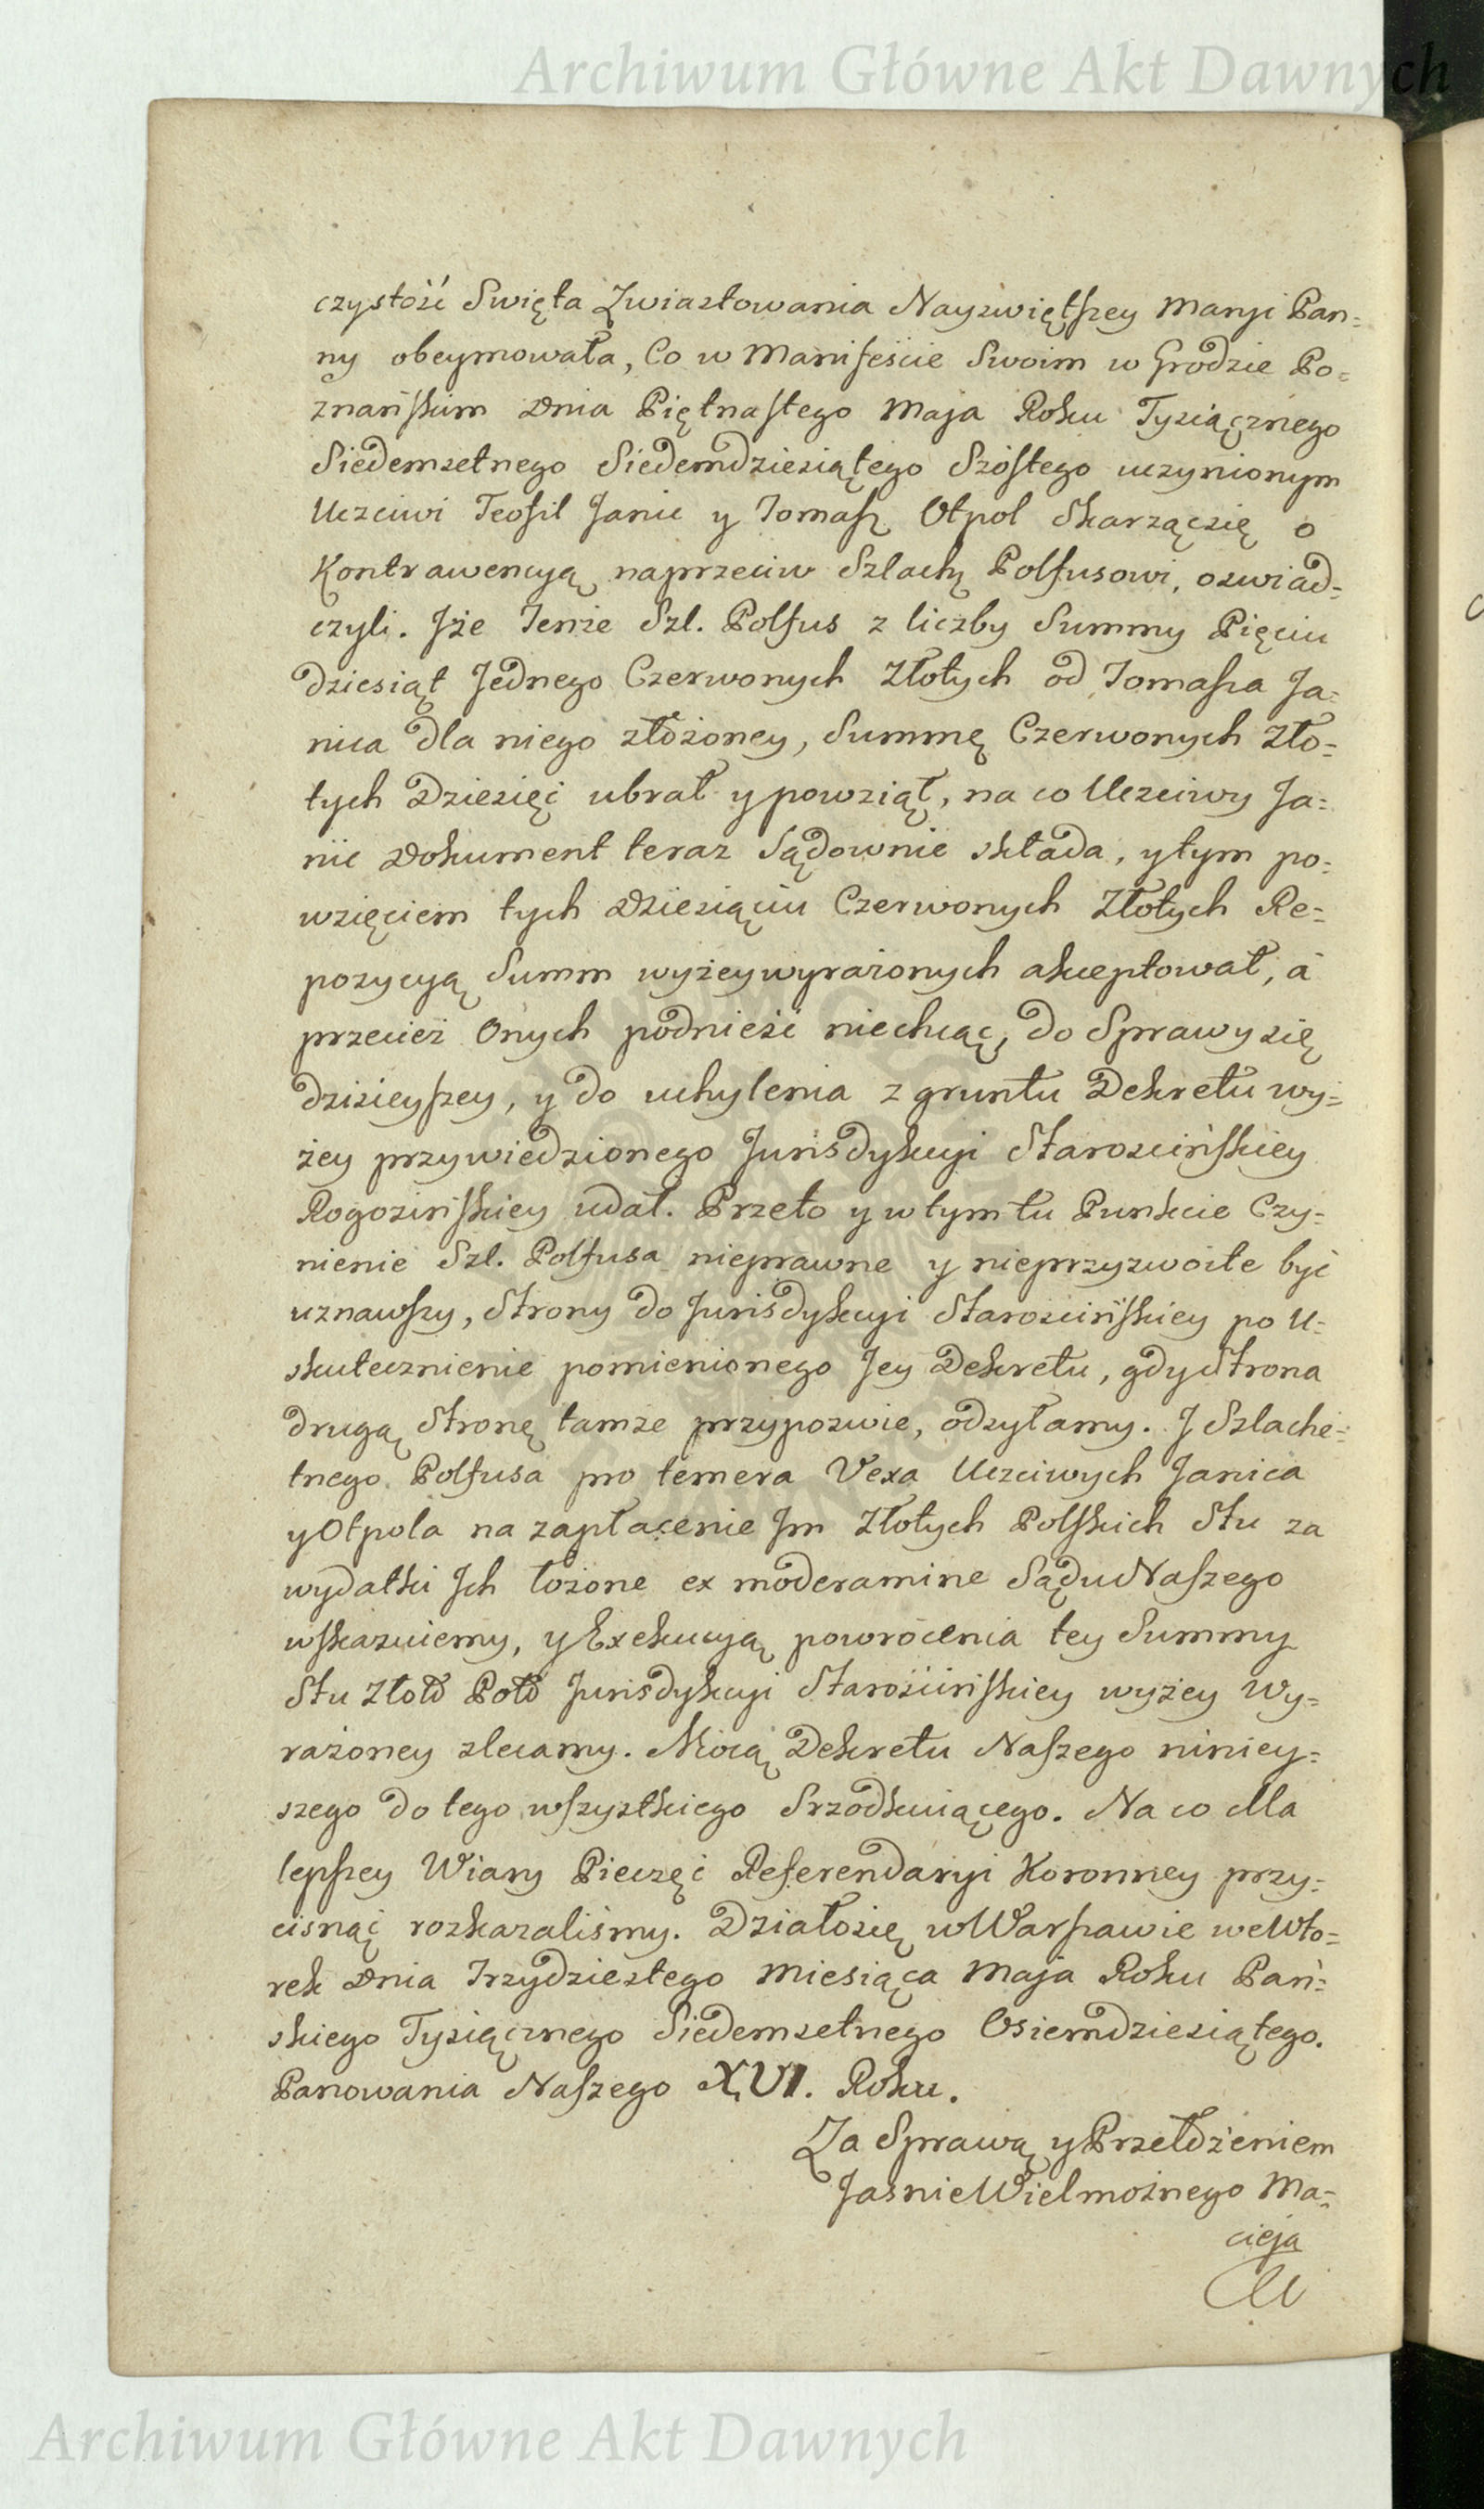 Archiwum Główne Akt Dawnych
czystość Swięta Zwiastowania Nayświętszey Maryi Pan=
ny obeymowała, Co w Manifeście Swoim w Grodzie Po=
znańskim Dnia Piętnastego Maja Roku Tysiącznego
Siedemsetnego Siedemdziesiątego Szóstego uczynionym
Uczciwi Teofil Janic y Tomasz Otpol Skarząc się o
Kontrawencyą naprzeciw Szlach. Polfusowi, oświad=
czyli. Jże Tenże Szl. Polfus z liczby Summy Pięciu
dziesiąt Jednego Czerwonych Złotych od Tomasza Ja=
nica dla niego złożoney, Summę Czerwonych Zło=
tych Dziesięć ubrał y powziął, na co Uczciwy Ja=
nic Dokument teraz Sądownie składa, y tym po=
wzięciem tych Dziesiąciu Czerwonych Złotych Re=
pozycyą Summ wyżey wyrażonych akceptował, a
przecież Onych podnieść niechcąc, do Sprawy się
dzisieyszey, y do uchylenia z gruntu Dekretu wy=
żey przywiedzionego Jurisdykcyi Starościńskiey
Rogozińskiey udał. Przeto y w tym tu Punkcie Czy=
nienie Szl. Polfusa nieprawne y nieprzyzwoite być
uznawszy, Strony do Jurisdykcyi Starościńskiey po U=
skutecznienie pomienionego Jey Dekretu, gdy Strona
drugą Stronę tamże przypozwie, odsyłamy. J Szlache=
tnego Polfusa pro temera Vexa Uczciwych Janica
y Otpola na zapłacenie Jm Złotych Polskich Stu za
wydatki Jch łożone ex moderamine Sądu Naszego
wskazuiemy, y Exekucyą powrócenia tey Summy
Stu Złoł Poł Jurisdykcyi Starościńskiey wyżey Wy=
rażoney zlecamy. Mocą Dekretu Naszego niniey=
szego do tego wszystkiego Srzodkuiącego. Na co dla
lepszey Wiary Pieczęć Referendaryi Koronney przy=
cisnąć rozkazaliśmy. Działo się w Warszawie we Wto=
rek Dnia Trzydziestego Miesiąca Maja Roku Pań=
skiego Tysiącznego Siedemsetnego Osiemdziesiątego.
Panowania Naszego XVI. Roku.
Za Sprawą y Przełożeniem
Jaśnie Wielmożnego Ma=
cieja
Archiwum Główne Akt Dawnych